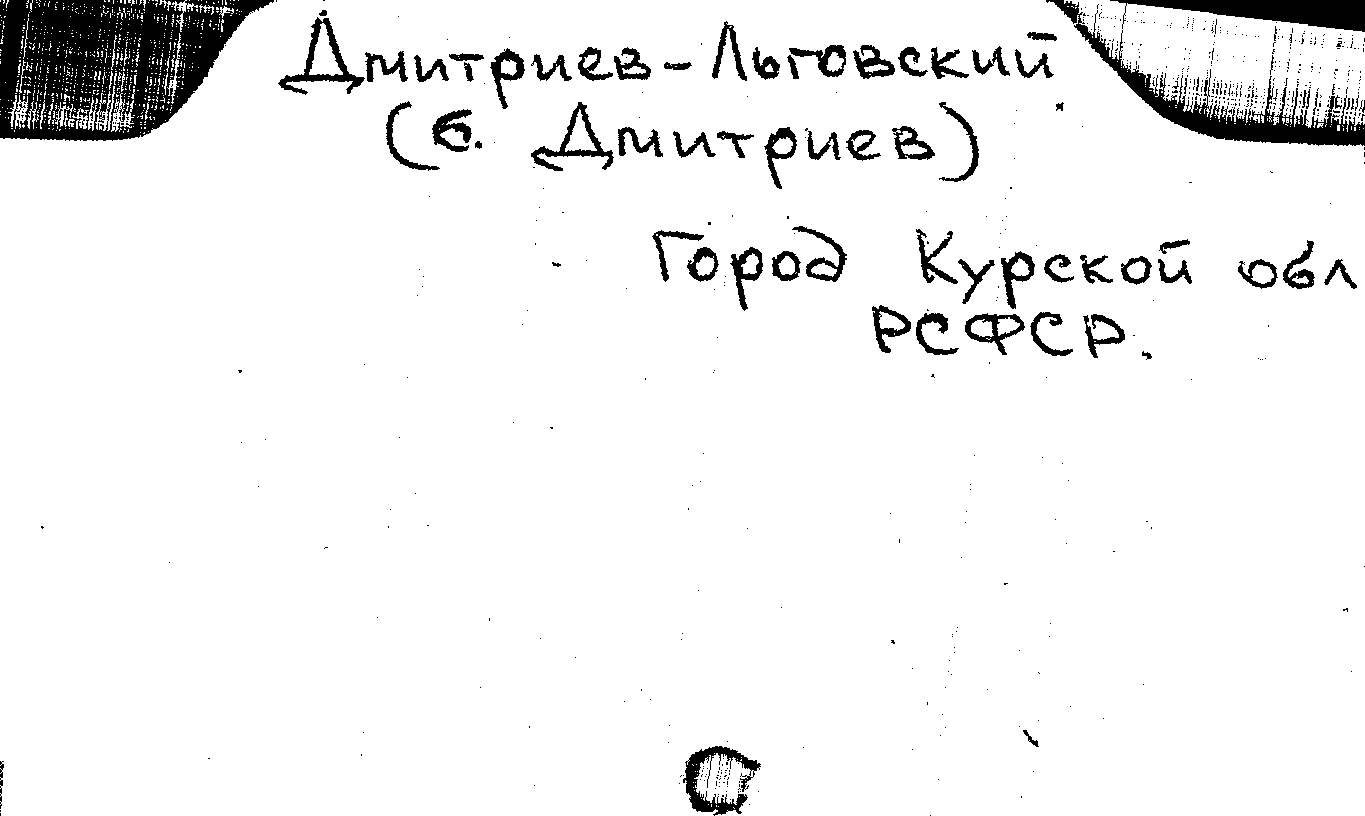 Дмитриев-Льговский
(б. Дмитриев)
Город Курской обл
РСФСР.